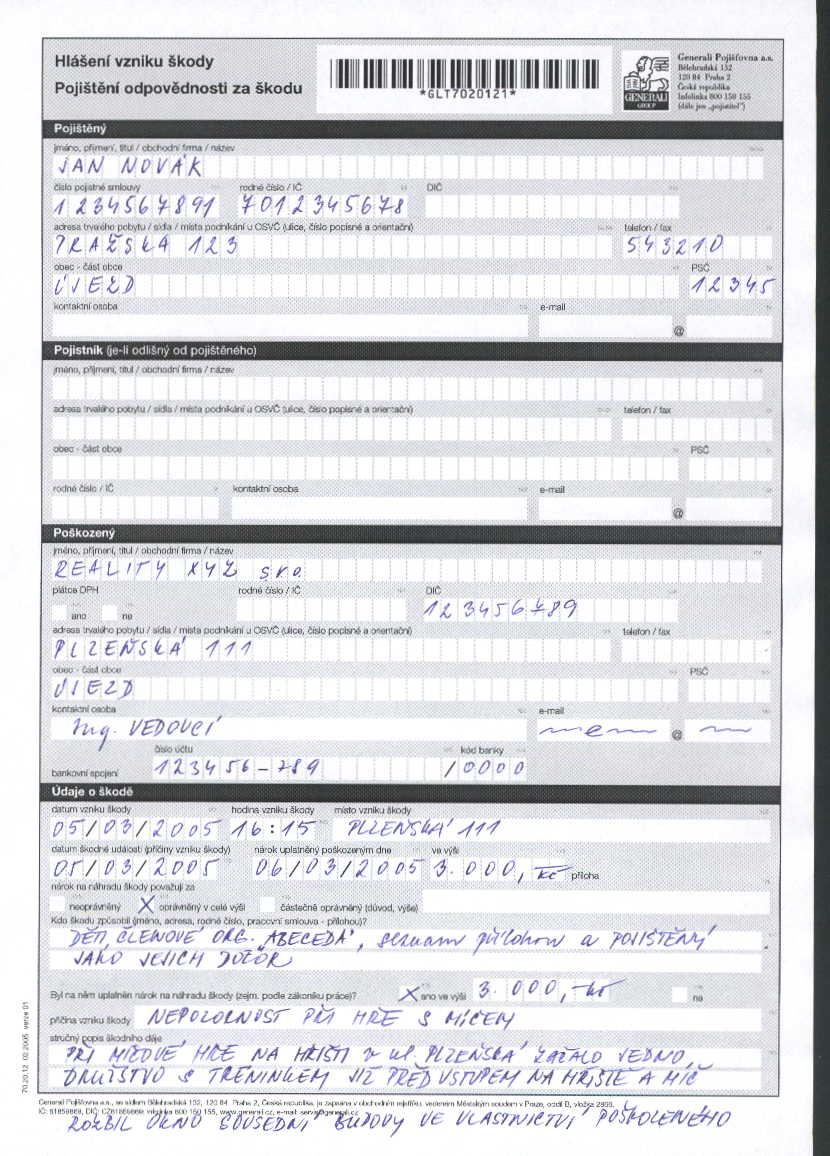 Hlášení vzniku škody
Pojištění odpovědnosti za škodu
*GLT7020121*
GENERALI
GROUP
Generali Pojišťovna a.s.
Bělehradská 132
120 84 Praha 2
Česká republika
Infolinka 800 150 155
(dále jen „pojistitel")
Pojištěný
jméno, příjmení, titul / obchodní firma / název
JAN NOVÁK
číslo pojistné smlouvy rodné číslo / IČ DIČ
1234567891 7012345678
adresa trvalého pobytu / sídla / místa podnikání u OSVČ (ulice, číslo popisné a orientační) telefon / fax
PRAŽSKÁ 123 543210
obec - část obce PSČ
ÚJEZD 12345
kontaktní osoba e-mail
@
Pojistník (je-li odlišný od pojištěného)
jméno, příjmení, titul / obchodní firma / název
adresa trvalého pobytu / sídla / místa podnikání u OSVČ (ulice, číslo popisné a orientační) telefon / fax
obec - část obce PSČ
rodné číslo / IČ kontaktní osoba e-mail
@
Poškozený
jméno, příjmení, titul / obchodní firma / název
REALITY XYZ s.r.o.
plátce DPH rodné číslo / IČ DIČ
ano ne 123456789
adresa trvalého pobytu / sídla / místa podnikání u OSVČ (ulice, číslo popisné a orientační) telefon / fax
PLZEŇSKÁ 111
obec - část obce PSČ
ÚJEZD
kontaktní osoba e-mail
Ing. VEDOUCÍ @
číslo účtu kód banky
bankovní spojení 123456-789 /0000
Údaje o škodě
datum vzniku škody hodina vzniku škody místo vzniku škody
05/03/2005 16:15 PLZEŇSKÁ 111
datum škodné události (příčiny vzniku škody) nárok uplatněný poškozeným dne ve výši
05/03/2005 06/03/2005 3.000,- Kč příloha
nárok na náhradu škody považuji za
neoprávněný X oprávněný v celé výši částečně oprávněný (důvod, výše)
Kdo škodu způsobil (jméno, adresa, rodné číslo, pracovní smlouva - přílohou)?
DĚTI, ČLENOVÉ ORG. "ABECEDA", seznam přílohou a POJIŠTĚNÝ
JAKO JEJICH DOZOR
Byl na něm uplatněn nárok na náhradu škody (zejm. podle zákoníku práce)? X ano ve výši 3.000,- Kč ne
příčina vzniku škody NEPOZORNOST PŘI HŘE S MÍČEM
stručný popis škodního děje
PŘI MÍČOVÉ HŘE NA HŘIŠTI v ul. PLZEŇSKÁ ZAČALO JEDNO
DRUŽSTVO S TRÉNINKEM JIŽ PŘED VSTUPEM NA HŘIŠTĚ A MÍČ
Generali Pojišťovna a.s., se sídlem Bělehradská 132, 120 84 Praha 2, Česká republika, je zapsána v obchodním rejstříku, vedeném Městským soudem v Praze, oddíl B, vložka 2866,
IČ: 61859869, DIČ: CZ61859869, infolinka 800 150 155, www.generali.cz, e-mail: servis@generali.cz
ROZBIL OKNO SOUSEDNÍ BUDOVY VE VLASTNICTVÍ POŠKOZENÉHO
70.20.12 02.2005 verze 01